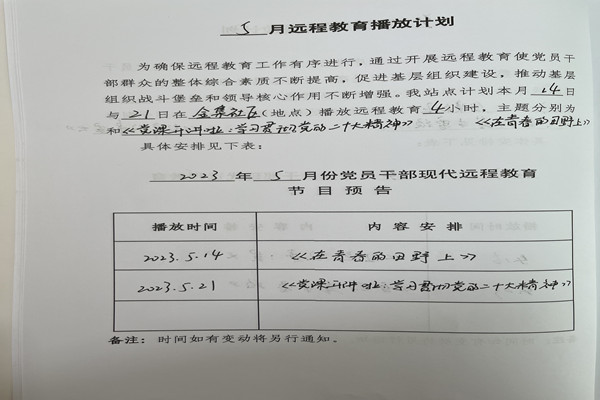 5 月远程教育播放计划
为确保远程教育工作有序进行，通过开展远程教育使党员干
部群众的整体综合素质不断提高，促进基层组织建设，推动基层
组织战斗堡垒和领导核心作用不断增强。我站点计划本月 14 日
与 21 日在 金集社区（地点）播放远程教育 4 小时，主题分别为
和《党课开讲啦：学习贯彻党的二十大精神》 《在青春的田野上》
具体安排见下表：
2023 年 5 月份党员干部现代远程教育
节目预告
播放时间 内容安排
2023.5.14 《在青春的田野上》
2023.5.21 《党课开讲啦：学习贯彻党的二十大精神》
备注： 时间如有变动将另行通知。